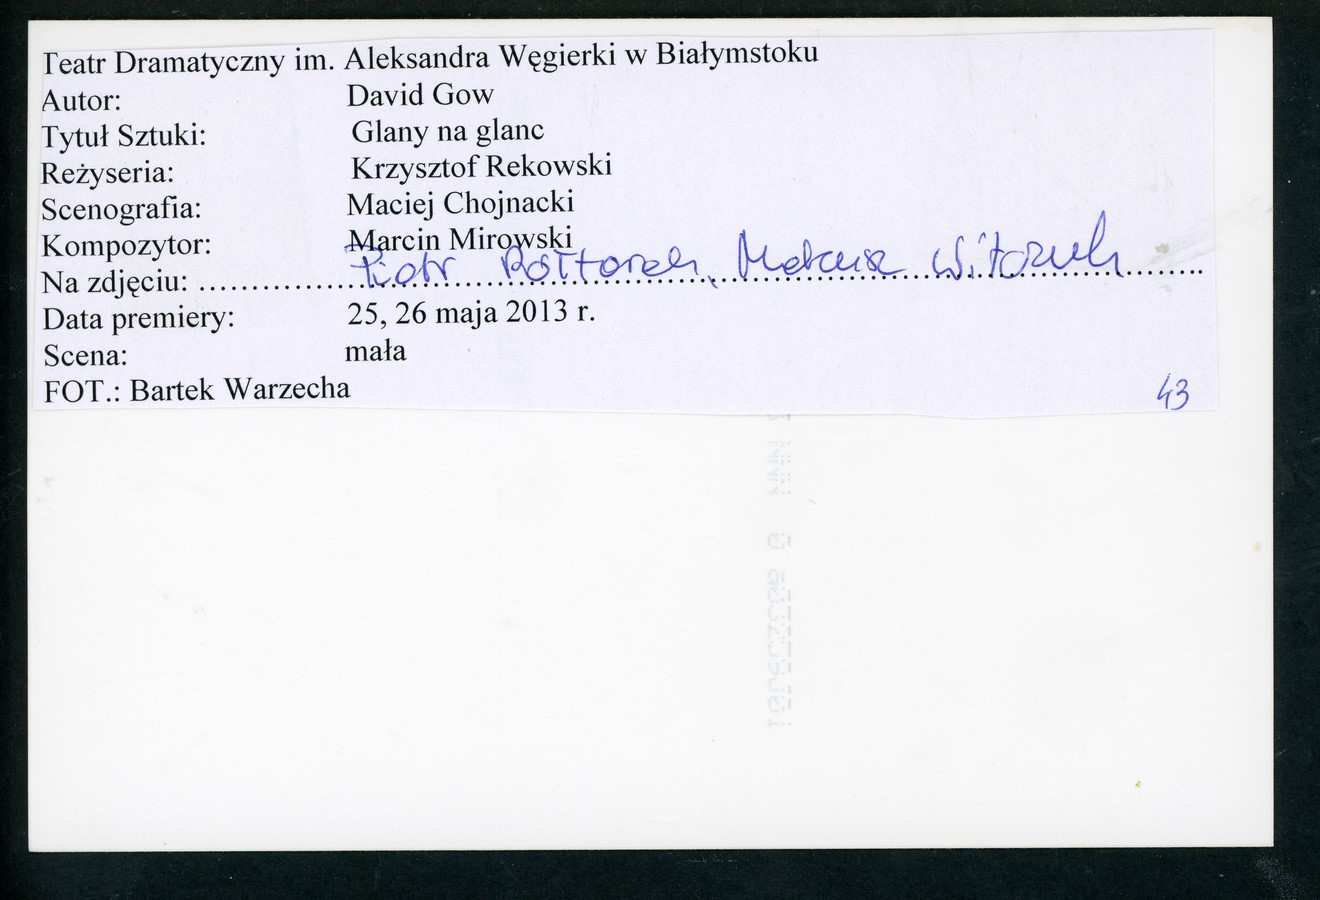 Teatr Dramatyczny im. Aleksandra Węgierki w Białymstoku
Autor: David Gow
Tytuł Sztuki: Glany na glanc
Reżyseria: Krzysztof Rekowski
Scenografia: Maciej Chojnacki
Kompozytor: Marcin Mirowski
Na zdjęciu: Piotr Półtorak, Mateusz Witczuk
Data premiery: 25, 26 maja 2013 r.
Scena: mała
FOT.: Bartek Warzecha
43